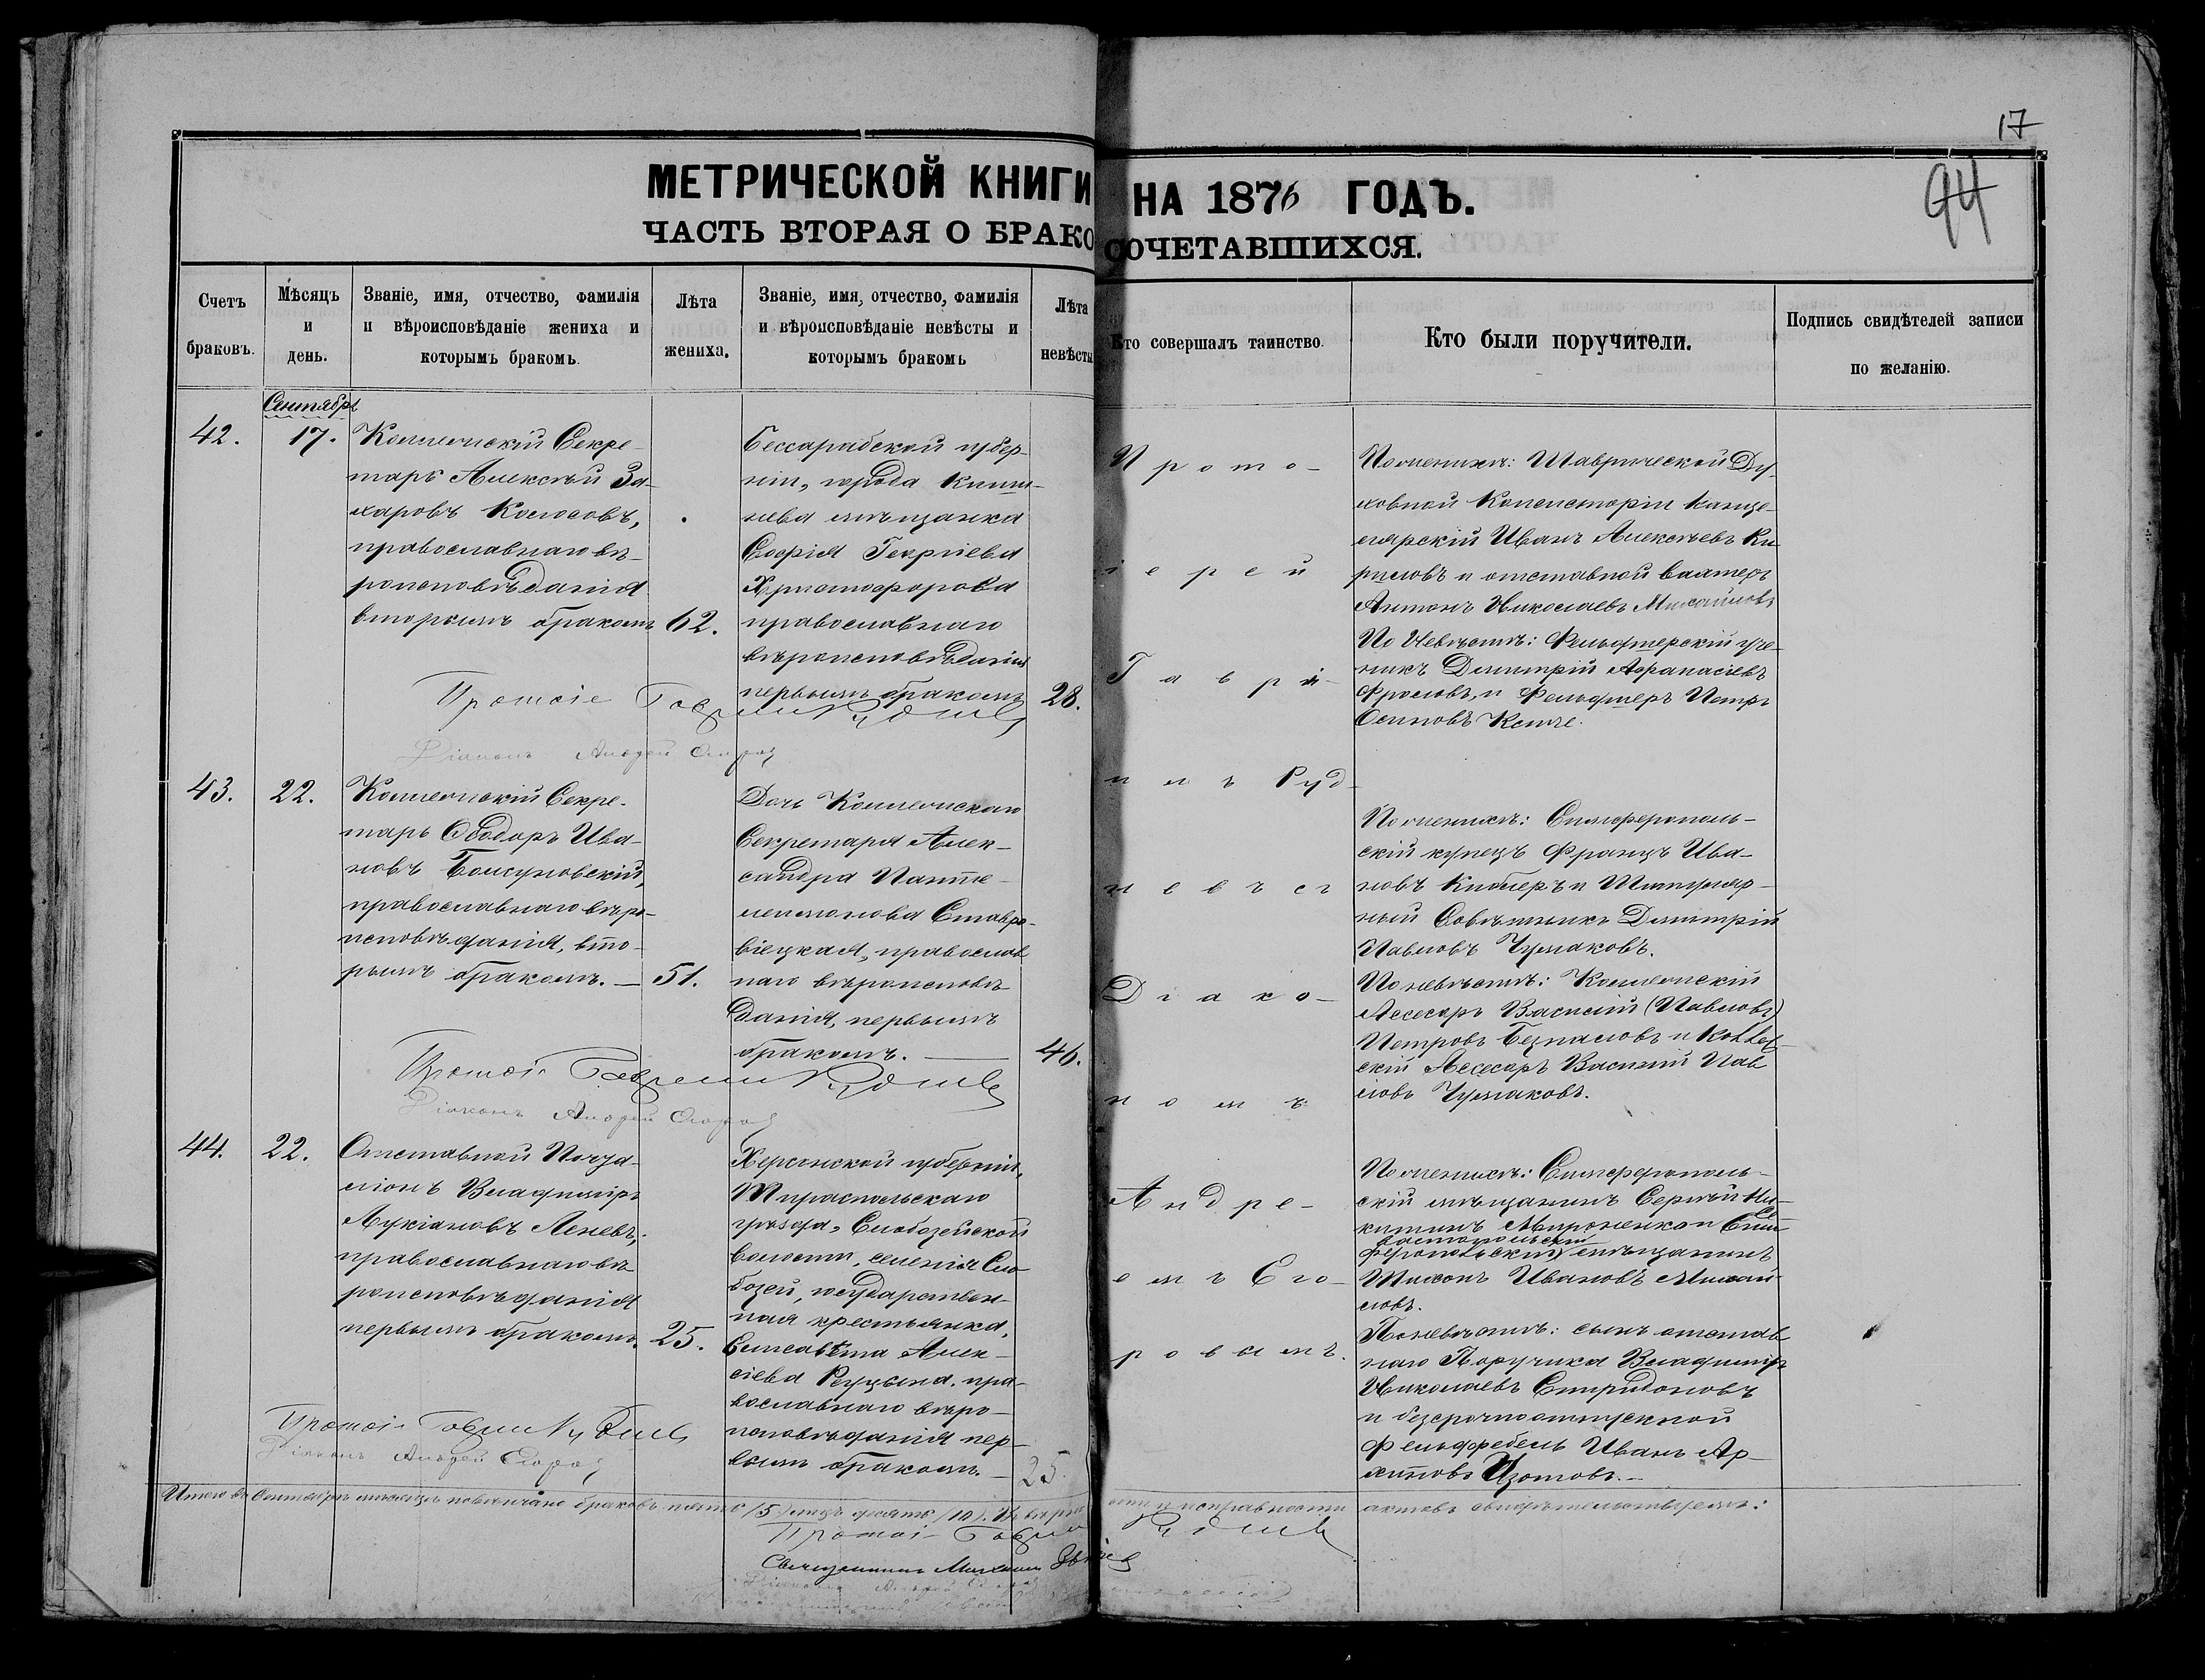 17
94
МЕТРИЧЕСКОЙ КНИГИ НА 1876 ГОДЪ.
ЧАСТЬ ВТОРАЯ О БРАКОСОЧЕТАВШИХСЯ.
Счетъ браковъ.
Мѣсяцъ и день.
Званіе, имя, отчество, фамилія
и вѣроисповѣданіе жениха и
которымъ бракомъ.
Лѣта жениха.
Званіе, имя, отчество, фамилія
и вѣроисповѣданіе невѣсты и
которымъ бракомъ
Лѣта невѣсты
Кто совершалъ таинство.
Кто были поручители.
Подпись свидѣтелей записи
по желанію.
Сентябрь
42.
17.
Коллежскій Секре-
тарь Алексѣй За-
харовъ Колосовъ,
православнаго вѣ-
роисповѣданія
вторымъ бракомъ
62.
Бессарабской губер-
ніи, города Киши-
нева мѣщанка
Софія Георгіева
Христофорова
православнаго
вѣроисповѣданія
первымъ бракомъ
28.
По женихѣ: Таврической Ду-
ховной Консисторіи канце-
лярскій Иванъ Алексѣевъ Ки-
риловъ и отставной вахтеръ
Антонъ Николаевъ Михайловъ
По Невѣстѣ: Фельдшерскій уче-
никъ Димитрій Афанасіевъ
Фроловъ, и Фельдшеръ Петръ
Осиповъ
Діаконъ Андрей
43.
22.
Коллежскій Секре-
тарь Ѳеодоръ Ива-
новъ
православнаго вѣро-
исповѣданія, вто-
рымъ бракомъ. —
51.
Дочь Коллежскаго
Секретаря Алек-
сандра Панте-
леимонова Ставро-
віецкая, православ
наго вѣроисповѣ-
данія, первымъ
бракомъ. —
46.
По женихѣ: Симферополь-
скій купецъ Францъ Ива-
новъ Киблеръ и Титуляр-
ный Совѣтникъ Димитрій
Павловъ Чумаковъ.
По невѣстѣ: Коллежскій
Асесоръ Василій (Павловъ)
Петровъ и Коллеж-
скій Асесоръ Василій Пав
ловъ Чумаковъ.
Діаконъ Андрей
44.
22.
Отставной Почта-
ліонъ Владиміръ
Лукіановъ Леневъ,
православнаго вѣ
роисповѣданія
первымъ бракомъ.
25.
Херсонской губерніи,
Тираспольскаго
уѣзда, Слободзейской
волости, селенія Сло
бозеи, государствен-
ная крестьянка,
Елисавета Алек-
сіева пра-
вославнаго вѣро-
исповѣданія пер-
вымъ бракомъ. —
25.
По женихѣ: Симферополь-
скій мѣщанинъ Сергѣй Ни-
китинъ Мироненко и Сим
севастопольскій
феропольскій мѣщанинъ
Тихонъ Ивановъ Михай-
ловъ.
По невѣстѣ: сынъ отстав
наго Поручика Владиміръ
Николаевъ Спиридоновъ
и безсрочноотпускной
Фельдфебель Иванъ Ар-
хиповъ Изотовъ. —
Діаконъ Андрей
Прото-
іерей
Гаврі-
илъ Руд-
невъ съ
Діако-
номъ
Андре-
емъ Его-
ровымъ.
Итого въ Сентябрѣ мѣсяцѣ повѣнчано браковъ пять /5/ лицъ десять /10/.
и исправности актовъ свидѣтельствуемъ:
Священникъ Михаилъ